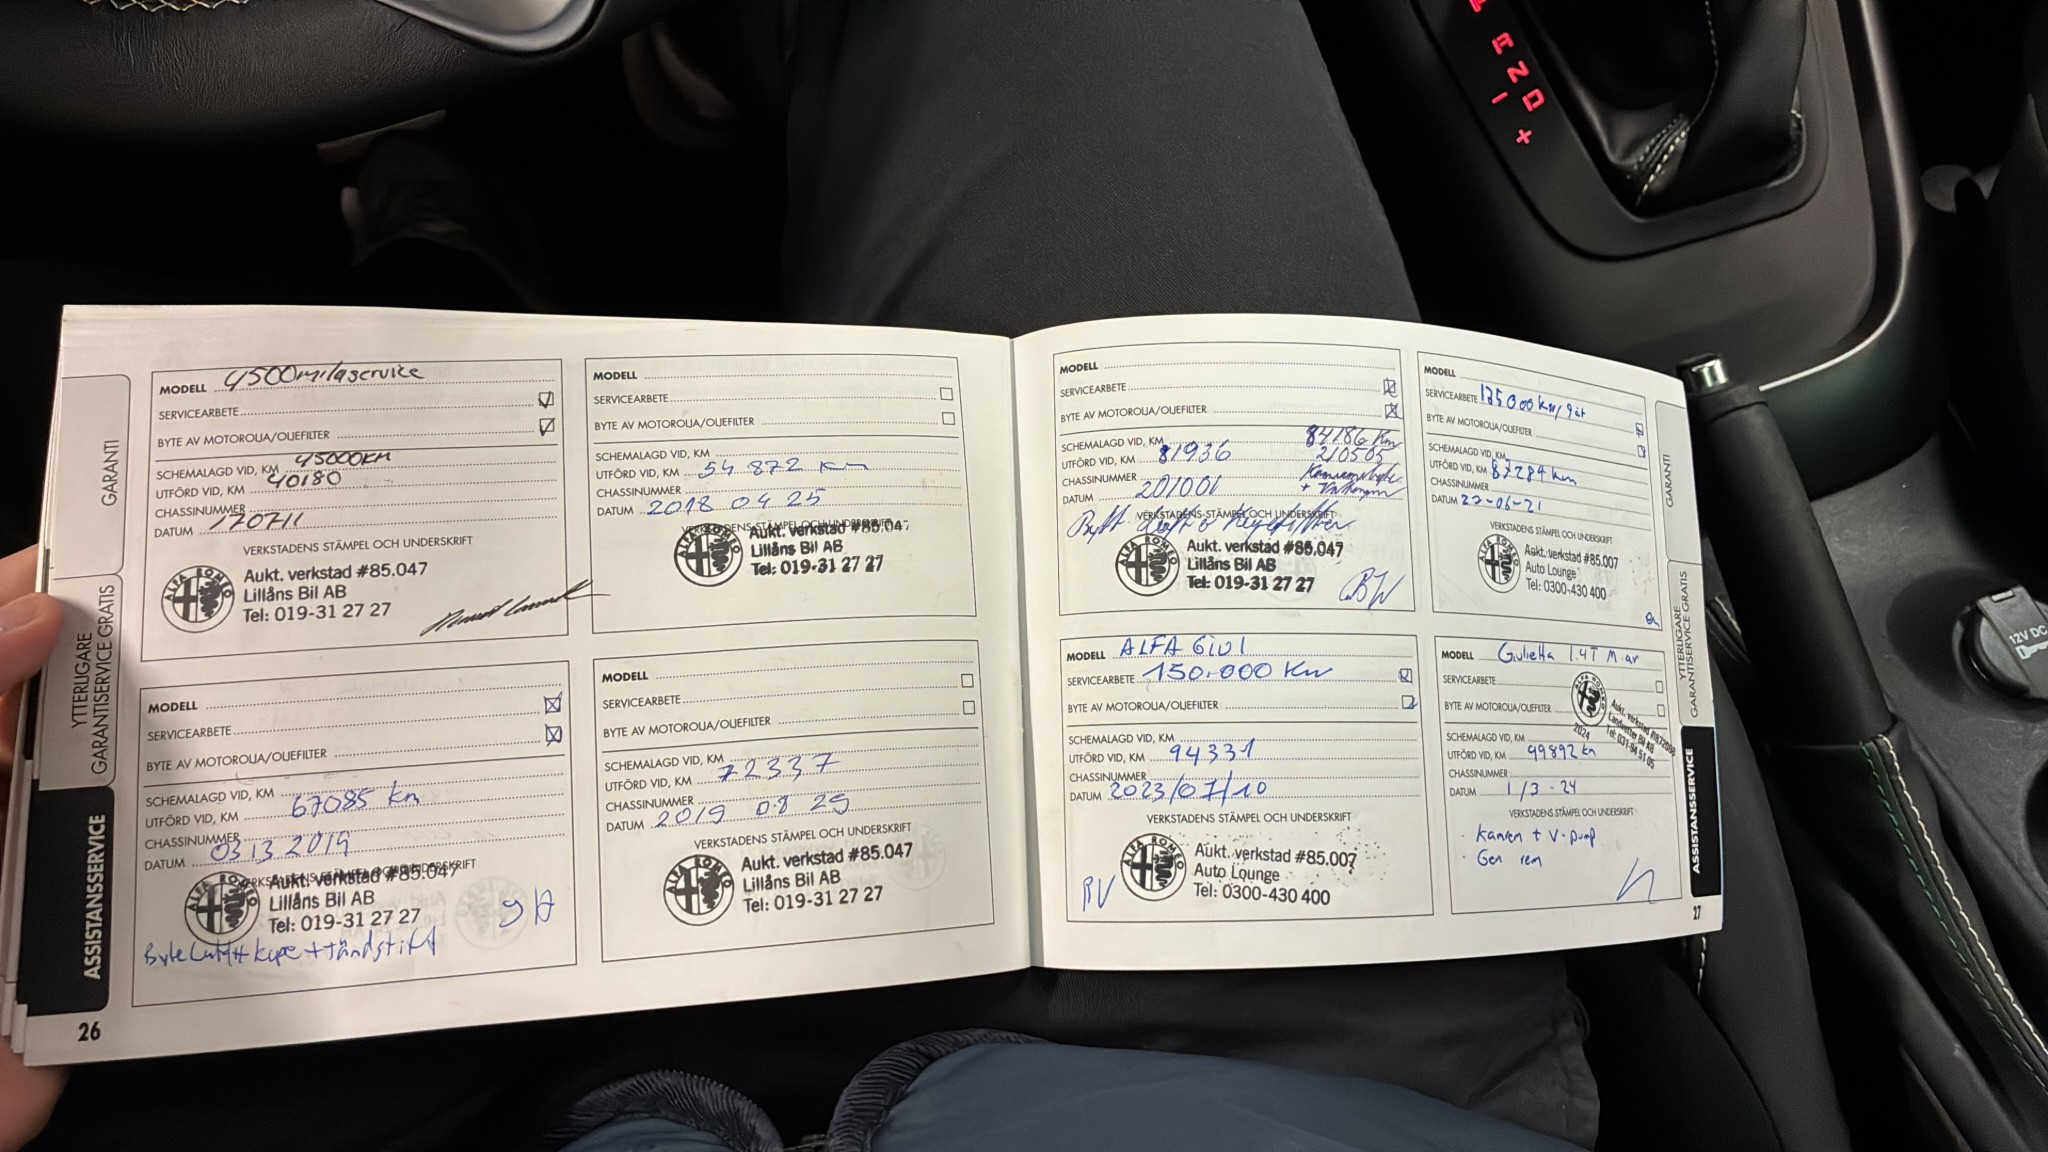 R
N
D
-
+
12V DC
GARANTI
YTTERLIGARE
GARANTISERVICE GRATIS
ASSISTANSSERVICE
26
MODELL 4500milaservice
SERVICEARBETE
BYTE AV MOTOROLJA/OLJEFILTER
SCHEMALAGD VID, KM 45000KM
UTFÖRD VID, KM 40180
CHASSINUMMER
DATUM 170711
VERKSTADENS STÄMPEL OCH UNDERSKRIFT
ALFA ROMEO
Aukt. verkstad #85.047
Lillåns Bil AB
Tel: 019-31 27 27
MODELL
SERVICEARBETE
BYTE AV MOTOROLJA/OLJEFILTER
SCHEMALAGD VID, KM
UTFÖRD VID, KM 54 872 km
CHASSINUMMER
DATUM 2018 04 25
VERKSTADENS STÄMPEL OCH UNDERSKRIFT
ALFA ROMEO
Aukt. verkstad #85.047
Lillåns Bil AB
Tel: 019-31 27 27
MODELL
SERVICEARBETE
BYTE AV MOTOROLJA/OLJEFILTER
SCHEMALAGD VID, KM
UTFÖRD VID, KM 67085 km
CHASSINUMMER
DATUM 0313 2019
VERKSTADENS STÄMPEL OCH UNDERSKRIFT
ALFA ROMEO
Aukt. verkstad #85.047
Lillåns Bil AB
Tel: 019-31 27 27
Byte Luft + kupe + tändstift
MODELL
SERVICEARBETE
BYTE AV MOTOROLJA/OLJEFILTER
SCHEMALAGD VID, KM
UTFÖRD VID, KM 72337
CHASSINUMMER
DATUM 2019 08 29
VERKSTADENS STÄMPEL OCH UNDERSKRIFT
ALFA ROMEO
Aukt. verkstad #85.047
Lillåns Bil AB
Tel: 019-31 27 27
MODELL
SERVICEARBETE
BYTE AV MOTOROLJA/OLJEFILTER
SCHEMALAGD VID, KM 84186 Km
UTFÖRD VID, KM 81936 210505
CHASSINUMMER
DATUM 201001
VERKSTADENS STÄMPEL OCH UNDERSKRIFT
Bytt Luft o Kupefilter
ALFA ROMEO
Aukt. verkstad #85.047
Lillåns Bil AB
Tel: 019-31 27 27
MODELL
SERVICEARBETE 135.000 km/9 år
BYTE AV MOTOROLJA/OLJEFILTER
SCHEMALAGD VID, KM
UTFÖRD VID, KM 87284 km
CHASSINUMMER
DATUM 22-06-21
VERKSTADENS STÄMPEL OCH UNDERSKRIFT
ALFA ROMEO
Aukt. verkstad #85.007
Auto Lounge
Tel: 0300-430 400
MODELL ALFA GIUL
SERVICEARBETE 150.000 Km
BYTE AV MOTOROLJA/OLJEFILTER
SCHEMALAGD VID, KM
UTFÖRD VID, KM 94331
CHASSINUMMER
DATUM 2023/07/10
VERKSTADENS STÄMPEL OCH UNDERSKRIFT
ALFA ROMEO
Aukt. verkstad #85.007
Auto Lounge
Tel: 0300-430 400
RV
MODELL Giulietta 1.4T M-air
SERVICEARBETE
BYTE AV MOTOROLJA/OLJEFILTER
ALFA ROMEO
2024
Aukt. verkstad
Landvetter Bil AB
Tel: 031-94 51 05
SCHEMALAGD VID, KM
UTFÖRD VID, KM 99892 km
CHASSINUMMER
DATUM 1/3-24
VERKSTADENS STÄMPEL OCH UNDERSKRIFT
· Kamrem + V-pump
· Gen rem
GARANTI
YTTERLIGARE
GARANTISERVICE GRATIS
ASSISTANSSERVICE
27